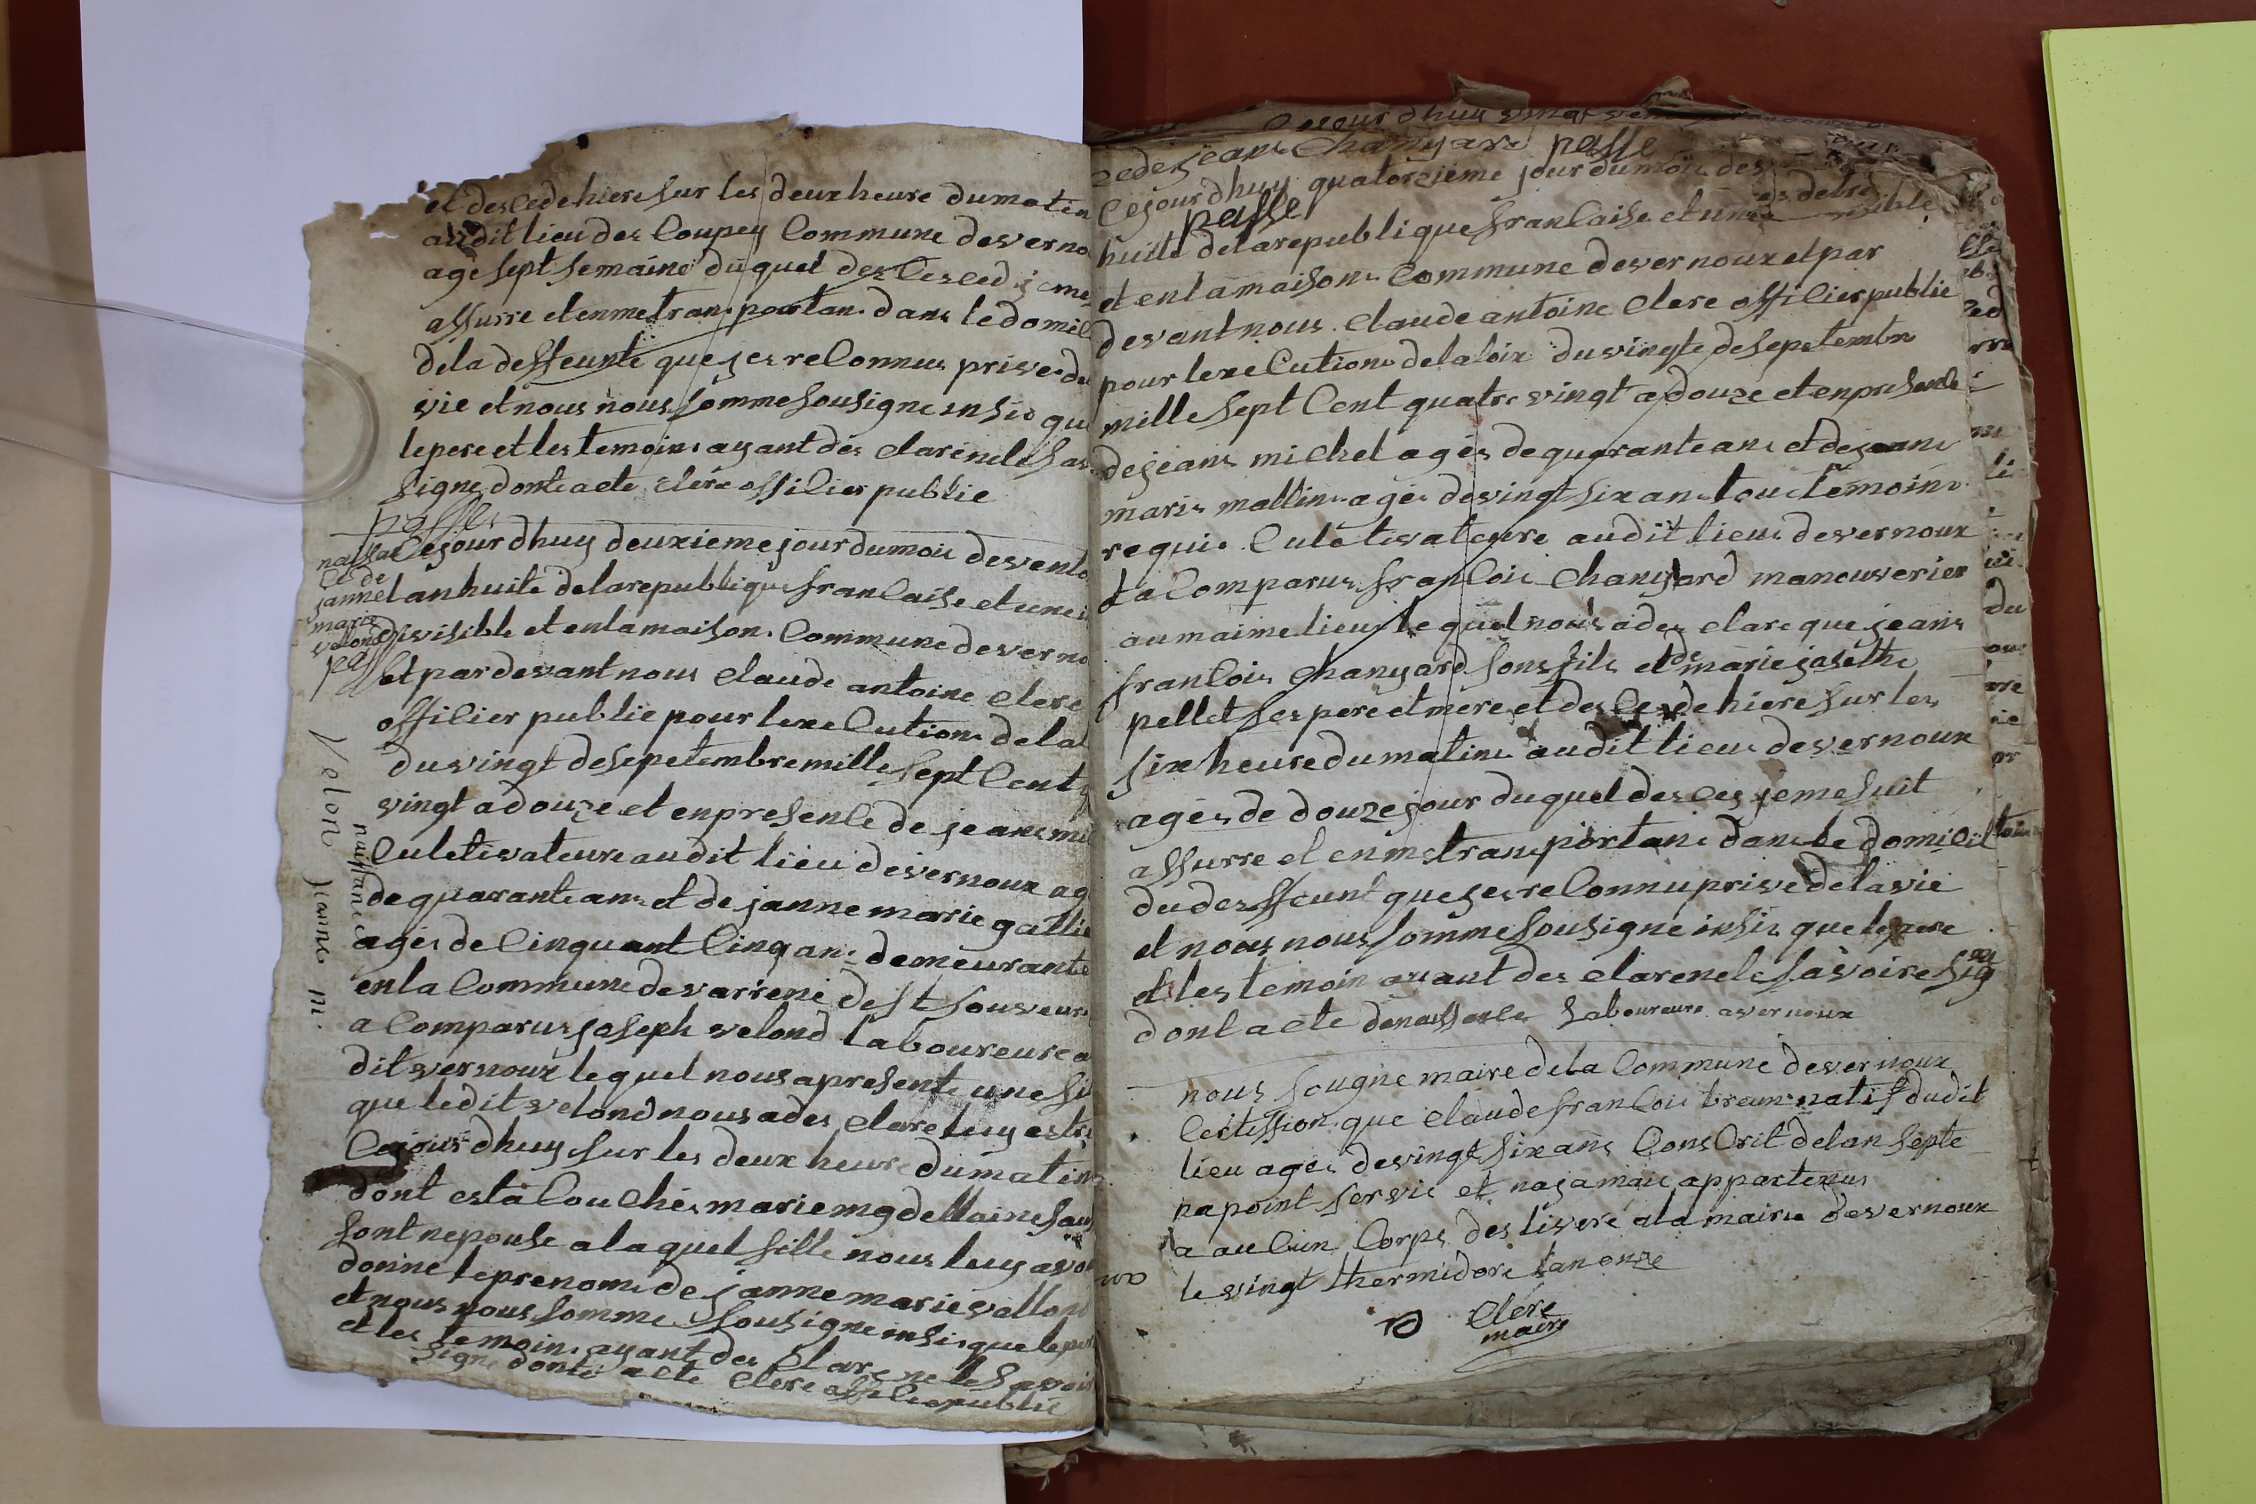 et descede hiere sur les deux heure du matin
audit lieu des Coupey Commune de verno
age sept semaine duquel des Cesced je me
assurre et en me transportan dans le domil
de la deffeunte que jes reConnus prives de
vie et nous nous somme sousigne insis que
le pere et les temoins ayant des clarénele sav
signe donte acte clére offilier publie
passes
Cejourdhuy deuxieme jour du mois de vento
naissan
Ce de
janne
marie
velond
pass
lan huite de la republique franCaise et une i
divisible et en la maison Commune de verno
et par devant nous claude antoine clere
offilier publie pour lexeCution de la l
du vingt de sepetembre mille sept Cent q
vingt a douze et en presenCe de jeans mi
Culetivateure audit lieu de vernoux ag
de quarante ans et de janne marie gallie
agés de Cinquant Cinq ans demeurante
en la Commune de varrene de st souveur
a Comparus joseph velond laboureure a
dit vernoux lequel nous apresente une fil
que ledit velond nous ades clare luy estre
Cejourdhuy sur les deux heure du matin
dont esta Couchés marie mgdellaine sau
sont nepouse a laquel fille nous luy avon
donne le prenom de janne marie vellond
et nous nous somme sousigne insis que le per
et les temoins ayant des clare nele savoir
signe donte acte clere offiliepublie
naissance
Velon jeanne m.
Cejourdhuy vingt
jeans Chanyard passe
Cejourdhuy quatorzieme jour du mois des
passe
huite de la republique franCaise et une
et en la maison Commune de vernoux et par
devant nous claude antoine clere offilier publie
pour lexeCution de la loix du vingte de sepetembre
mille sept Cent quatre vingt a douze et en presenCe
de jeans michel agés de quarante ans et de janne
maris mallin agés de vingt six ans tous témoins
requis Culétivateure audit lieu de vernoux
La Comparus franCois Chanyard manouverier
au maime lieu lequel nous ades clare que jeans
franCois Chanyard sons fils et de marie jasethe
pellet ses pere et mere et des Cesde hiere sur les
six heure du matin audit lieu de vernoux
agés de douze jour duquel des Ces je me suit
assurre et en me transportans dans le domicil
du desfeunt que jes reConnu prive de la vie
et nous nous somme sousigne insis que le pere
et les temoin ayant des clarenele savoire sig
dont acte de naissence Laboureure a vernoux
nous sougne maire de la Commune de vernoux
Certiffion que claude franCois brun natif dudit
lieu agés de vingt six ans ConsCrit de lan septe
na point servie et na jamais appartenus
a auCun Corps des liveré a la mairie de vernoux
le vingt thermidore lan onze
Clére
maire